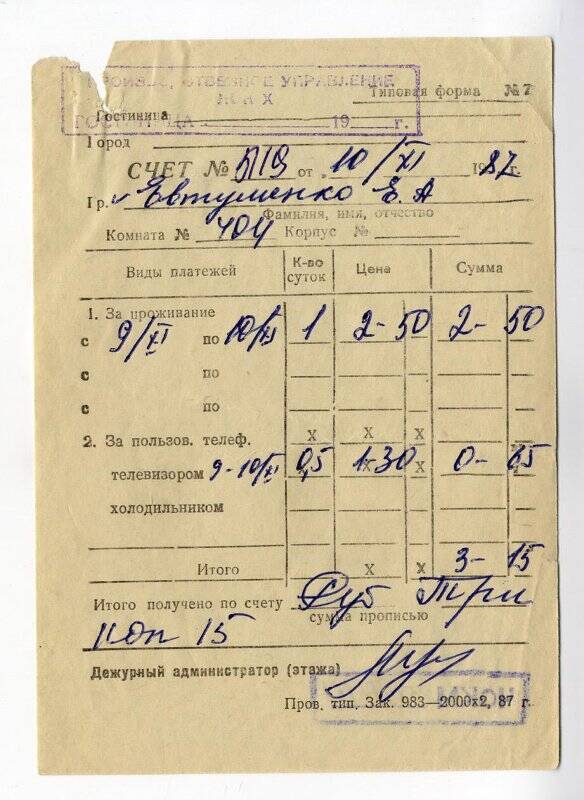 ПРОИЗВОДСТВЕННОЕ УПРАВЛЕНИЕ
ЖКХ
Типовая форма №7
Гостиница
ГОСТИНИЦА 19 г.
Город
СЧЕТ № 5119 от „ 10/XI 1987 г.
Гр. Евтушенко Е. А
Фамилия, имя, отчество
Комната № 704 Корпус №
Виды платежей К-во суток Цена Сумма
1. За проживание
с 9/XI по 10/XI 1 2-50 2-50
с по
с по
2. За пользов. телеф. х х х
телевизором 9-10/XI 0,5 1-30 0-65
холодильником
Итого х х 3-15
Итого получено по счету Руб Три
сумма прописью
коп 15
Дежурный администратор (этажа)
Пров. тип. Зак. 983—2000х2, 87 г.